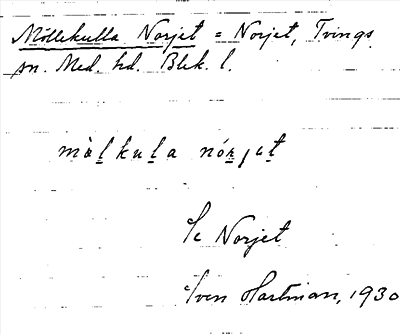 Möllekulla Norjet = Norjet, Tvings
sn. Med. hd. Blek. l.
mö̀lkula nórjut
Se Norjet
Sven Hartman, 1930